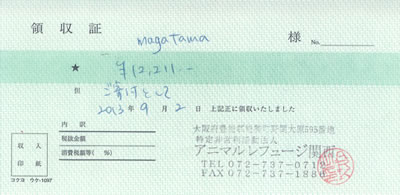 領収証
magatama 様 No.
★ ¥12,211.-
但 ご寄付として
2013年9月2日 上記正に領収いたしました
内訳
税抜金額
消費税額等(%)
収入
印紙
コクヨ ウケ-1097
大阪府豊能郡能勢町野間大原595番地
特定非営利活動法人
アニマルレフュージ関西
TEL 072-737-0712
FAX 072-737-1886